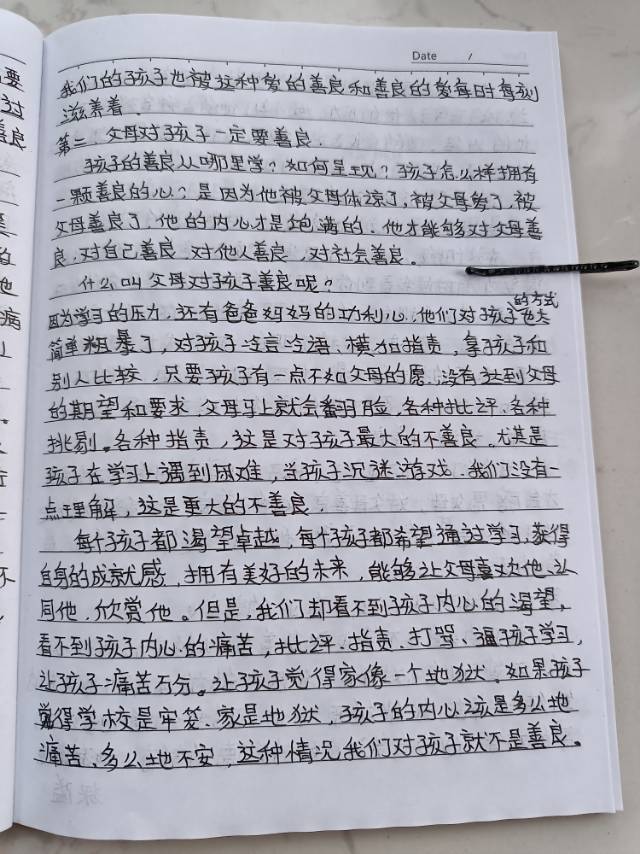 Date /
我们的孩子也被这种爱的善良和善良的爱每时每刻
滋养着.
第二、父母对孩子一定要善良.
孩子的善良从哪里学?如何呈现?孩子怎么样拥有
一颗善良的心?是因为他被父母体谅了,被父母爱了,被
父母善良了.他的内心才是饱满的.他才能够对父母善
良,对自己善良.对他人善良,对社会善良。
什么叫父母对孩子善良呢?
的方式
因为学习的压力,还有爸爸妈妈的功利心.他们对孩子也太
简单粗暴了,对孩子冷言冷语、横加指责,拿孩子和
别人比较,只要孩子有一点不如父母的愿.没有达到父母
的期望和要求.父母马上就会翻脸,各种批评.各种
挑剔。各种指责,这是对孩子最大的不善良.尤其是
孩子在学习上遇到困难,当孩子沉迷游戏.我们没有一
点理解,这是更大的不善良.
每个孩子都渴望卓越,每个孩子都希望通过学习,获得
自身的成就感,拥有美好的未来,能够让父母喜欢他、认
同他,欣赏他。但是,我们却看不到孩子内心的渴望,
看不到孩子内心的痛苦,批评、指责.打骂、逼孩子学习,
让孩子痛苦万分。让孩子觉得家像一个地狱.如果孩子
觉得学校是牢笼、家是地狱,孩子的内心该是多么地
痛苦、多么地不安,这种情况我们对孩子就不是善良。
要
过
善良
的
他
病
不